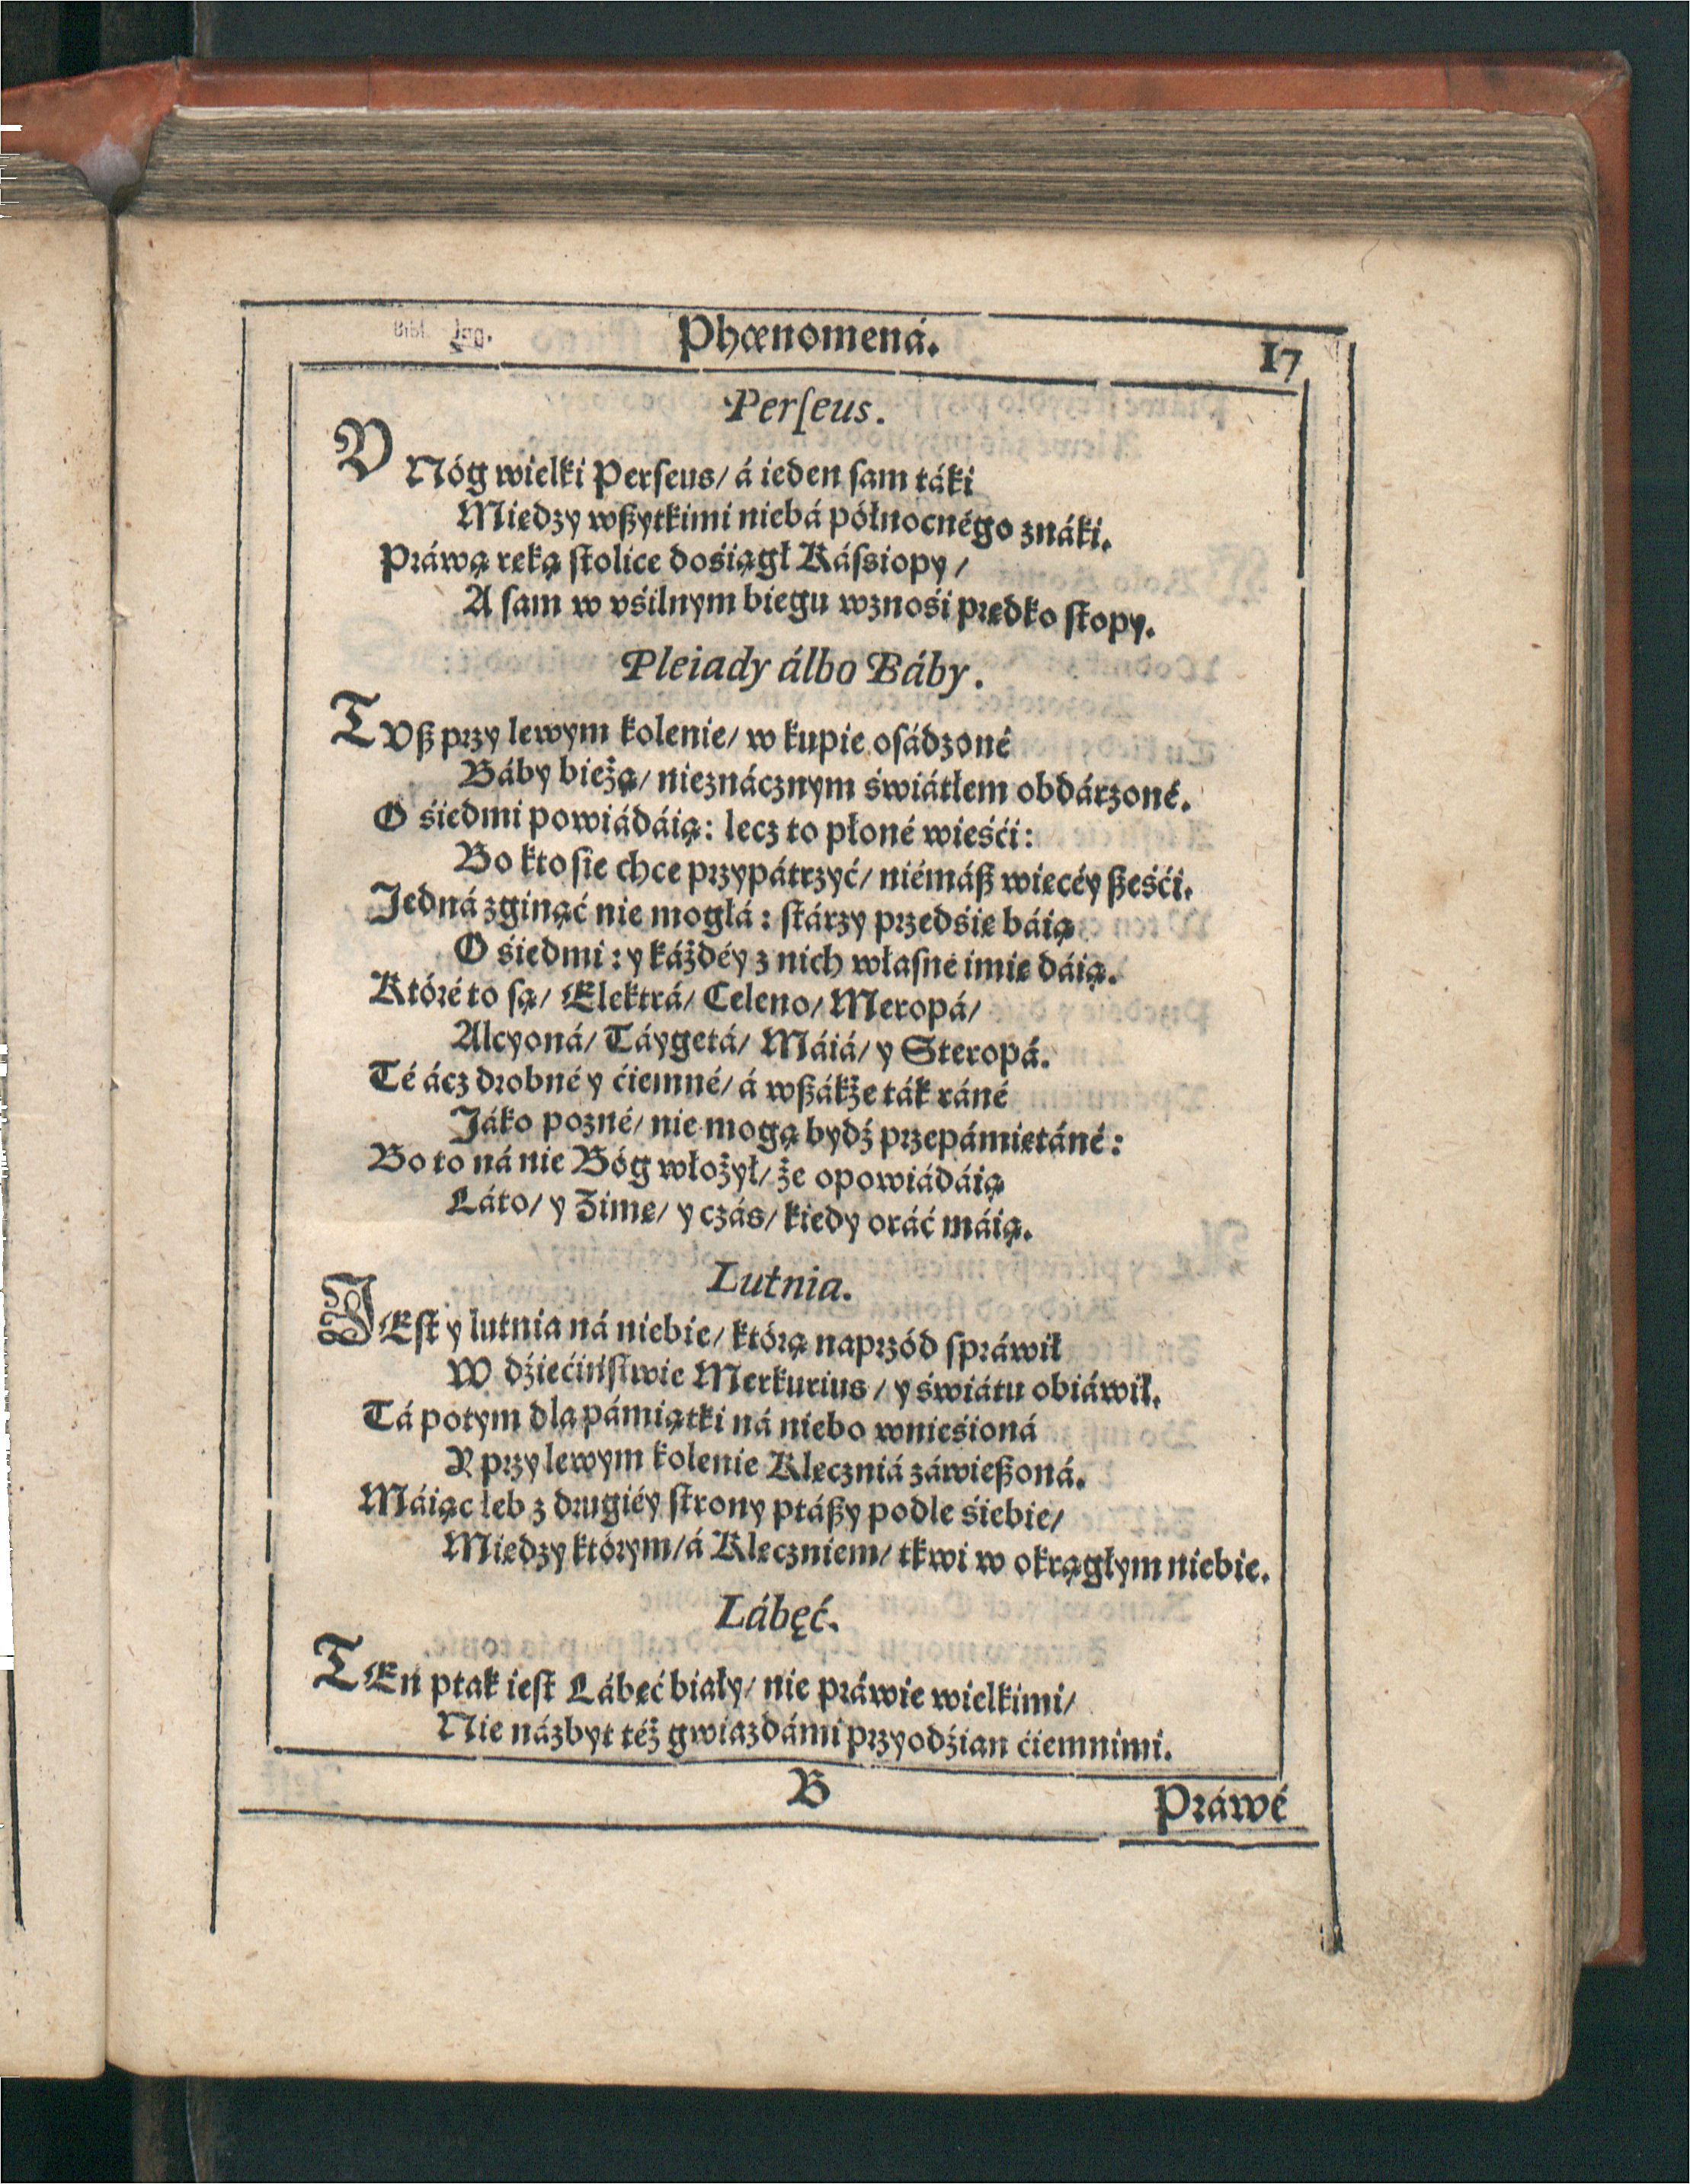 Bibl. Jag.
Phœnomená.
17
Perſeus.
V Nóg wielki Perſeus/ á ieden ſam táki
Między wßytkimi niebá północnégo znáki.
Práwą ręką ſtolice dośiągł Káſsiopy/
A ſam w vśilnym biegu wznośi prędko ſtopy.
Pleiady álbo Báby.
TVß przy lewym kolenie/ w kupie oſádzoné
Báby bieżą/ nieznácznym świátłem obdárzoné.
O śiedmi powiádáią: lecz to płoné wieśći:
Bo kto ſie chce przypátrzyć/ niémáß więcéy ßeśći.
Jedná zginąć nie mogłá: ſtárzy przedśię báią
O śiedmi: y káżdéy z nich własné imię dáią.
Któré to ſą/ Elektrá/ Celeno/ Meropá/
Alcyoná/ Táygetá/ Máiá/ y Steropá.
Té ácz drobné y ćiemné/ á wßákże ták ráné
Jáko pozné/ nie mogą bydź przepámiętáné:
Bo to ná nie Bóg włożył/ że opowiádáią
Láto/ y Zimę/ y czás/ kiedy oráć máią.
Lutnia.
JEſt y lutnia ná niebie/ którą naprzód ſpráwił
W dźiećińſtwie Merkurius/ y świátu obiáwił.
Tá potym dla pámiątki ná niebo wnieśioná
Y przy lewym kolenie Klęczniá záwießoná.
Máiąc łeb z drugiéy ſtrony ptáßy podle śiebie/
Między którym/ á Klęczniem/ tkwi w okrągłym niebie.
Lábęć.
TEn ptak ieſt Lábęć biały/ nie práwie wielkimi/
Nie názbyt téż gwiazdámi przyodźian ćiemnimi.
B
Práwé